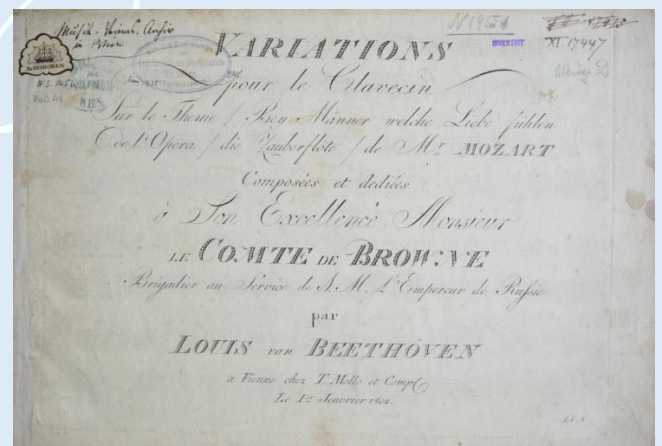 Musik-
in
N 1451
INVENTIRT
XI 17447
BOHOREN
W.S.
WoO.46
WIEN
VARIATIONS
pour le Clavecin
Sur le Theme / Bey Männer welche Liebe fühlen
de l'Opera / die Zauberflöte / de Mr. MOZART
Composées et dediées
à Son Excellence Monsieur
LE COMTE DE BROWNE
Brigadier au Service de S. M. L'Empereur de Russie
par
LOUIS van BEETHOVEN
a Vienne chez T. Mollo et Comp
Le 1r Janvrier 1802.